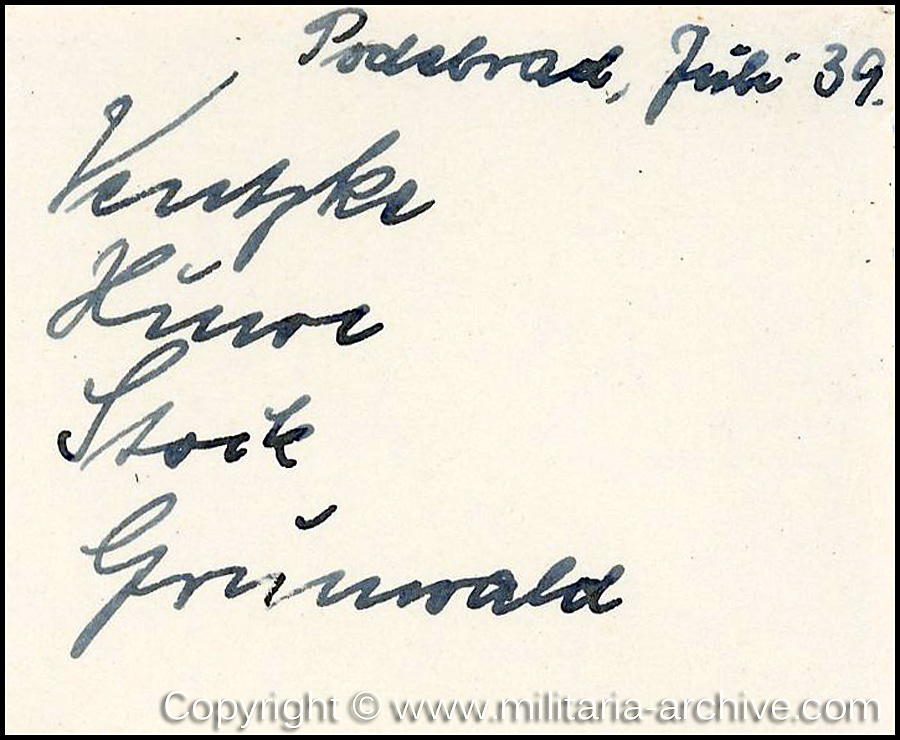 Podebrad, Juli 39.
Ventzke
Huwe
Stock
Grunwald
Copyright © www.militaria-archive.com